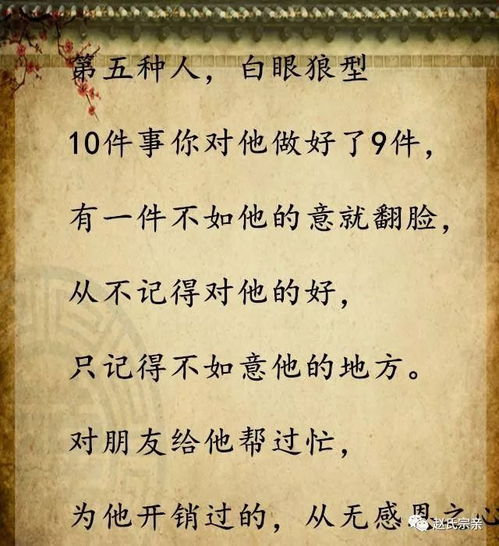 第五种人，白眼狼型
10件事你对他做好了9件，
有一件不如他的意就翻脸，
从不记得对他的好，
只记得不如意他的地方。
对朋友给他帮过忙，
为他开销过的，从无感恩之心
赵氏宗亲